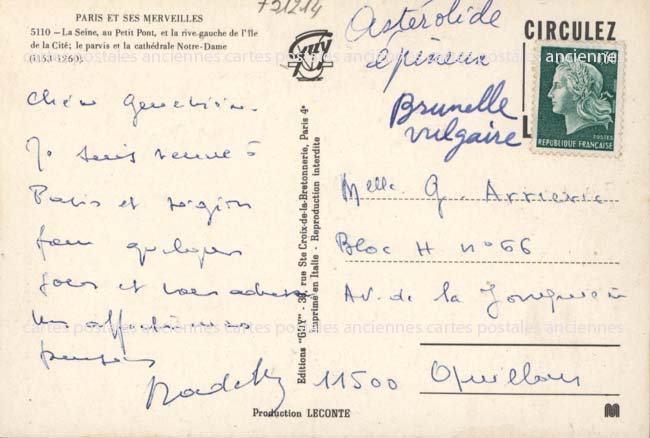 PARIS ET SES MERVEILLES
5110 - La Seine, au Petit Pont, et la rive gauche de l'Ile
de la Cité; le parvis et la cathédrale Notre-Dame
(1163-1260).
731214
GUY
Astérolide
épineux
Brunelle
vulgaire
CIRCULEZ
POSTES
REPUBLIQUE FRANÇAISE
Chère Geneviève
Je suis venue à
Paris et région
pour quelques
jours et vous adresse
mes affectueuses
pensées
Editions "GUY" - 39, rue Ste Croix-de-la-Bretonnerie, Paris 4e
Imprimé en Italie - Reproduction interdite
Melle G.
Bloc H n° 66
Av. de la
11500 Quillan
Production LECONTE
M
cartes postales anciennes cartes postales anciennes
cartes postales anciennes cartes postales anciennes